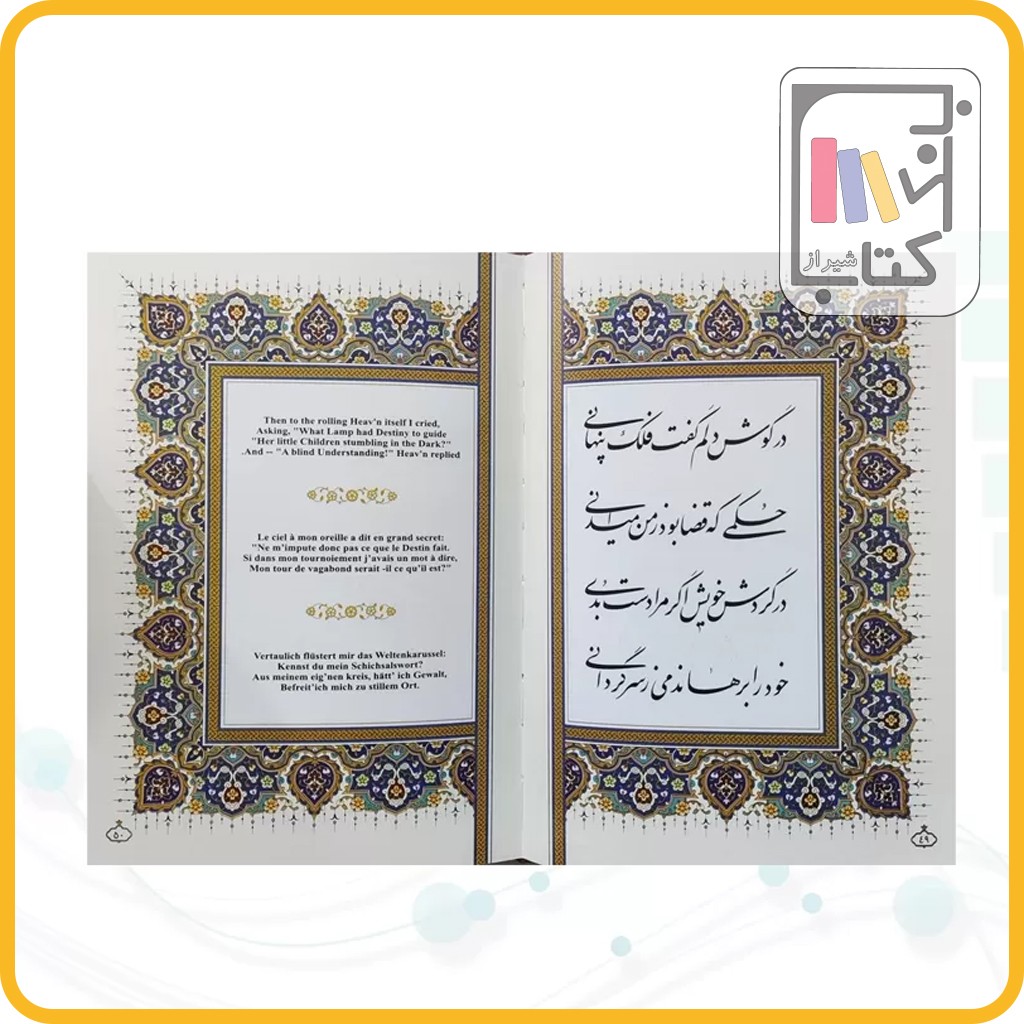 بانک
کتاب
شیراز
در گوش دلم گفت فلک پنهانی
حکمی که قضا بود ز من میدانی
در گردش خویش اگر مرا دست بدی
خود را برهاندمی ز سرگردانی
٤٩
Then to the rolling Heav'n itself I cried,
Asking, "What Lamp had Destiny to guide
"Her little Children stumbling in the Dark?"
.And -- "A blind Understanding!" Heav'n replied
Le ciel à mon oreille a dit en grand secret:
"Ne m'impute donc pas ce que le Destin fait.
Si dans mon tournoiement j'avais un mot à dire,
Mon tour de vagabond serait -il ce qu'il est?"
Vertaulich flüstert mir das Weltenkarussel:
Kennst du mein Schichsalswort?
Aus meinem eig'nen kreis, hätt' ich Gewalt,
Befreit'ich mich zu stillem Ort.
٥٠